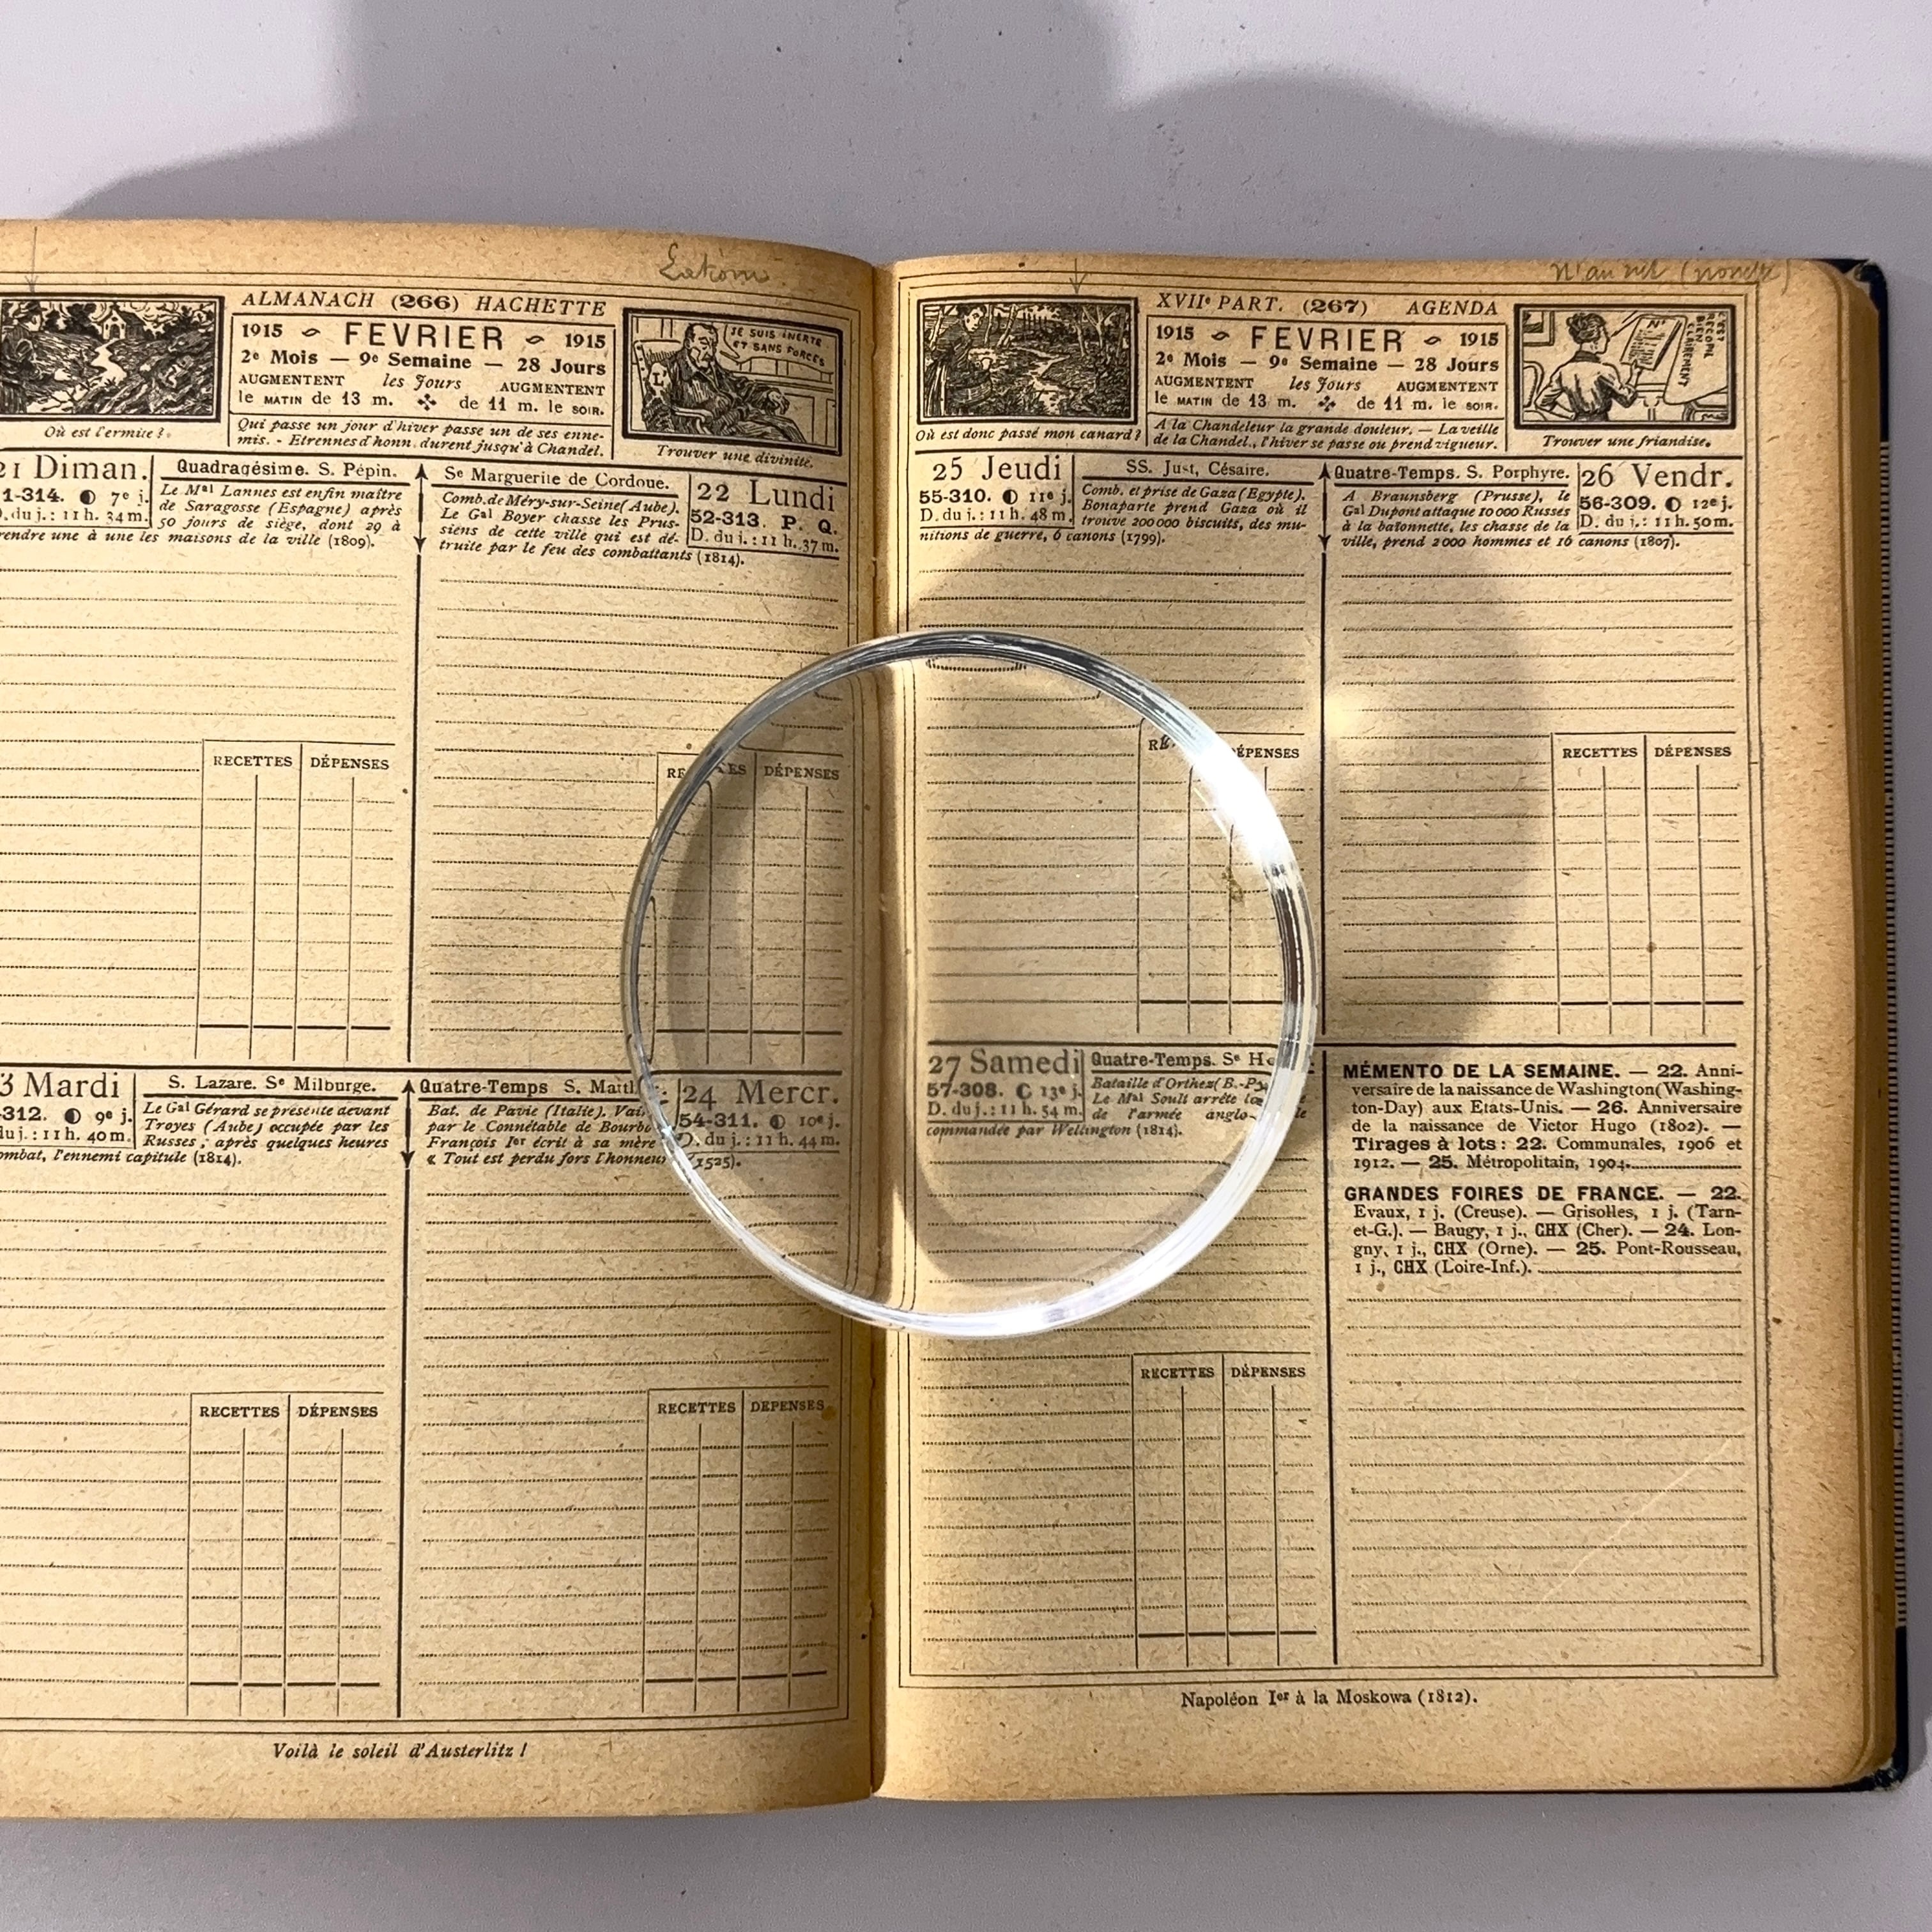 Lakom
ALMANACH (266) HACHETTE
1915 FEVRIER 1915
2e Mois — 9e Semaine — 28 Jours
AUGMENTENT les Jours AUGMENTENT
le MATIN de 13 m. de 11 m. le SOIR.
Qui passe un jour d'hiver passe un de ses enne-
mis. - Etrennes d'honn. durent jusqu'à Chandel.
Où est l'ermite ?
JE SUIS INERTE
ET SANS FORCES
L'
Trouver une divinité.
21 Diman.
1-314. 7e j.
D. du j. : 11 h. 34 m.
Quadragésime. S. Pépin.
Le Mal Lannes est enfin maître
de Saragosse (Espagne) après
50 jours de siège, dont 29 à
rendre une à une les maisons de la ville (1809).
Se Marguerite de Cordoue.
Comb. de Méry-sur-Seine (Aube).
Le Gal Boyer chasse les Prus-
siens de cette ville qui est dé-
truite par le feu des combattants (1814).
22 Lundi
52-313. P. Q.
D. du j. : 11 h. 37 m.
RECETTES DÉPENSES
DÉPENSES
3 Mardi
-312. 9e j.
du j. : 11 h. 40 m.
S. Lazare. Se Milburge.
Le Gal Gérard se présente devant
Troyes (Aube) occupée par les
Russes ; après quelques heures
ombat, l'ennemi capitule (1814).
Quatre-Temps S.
Bat. de Pavie (Italie).
par le Connétable de
François Ier écrit à sa mère
« Tout est perdu fors l'honneur (1525).
24 Mercr.
54-311. 10e j.
D. du j. : 11 h. 44 m.
RECETTES DÉPENSES
RECETTES DEPENSES
Voilà le soleil d'Austerlitz !
XVIIe PART. (267) AGENDA
1915 FEVRIER 1915
2e Mois — 9e Semaine — 28 Jours
AUGMENTENT les Jours AUGMENTENT
le MATIN de 13 m. de 11 m. le SOIR.
A la Chandeleur la grande douleur. — La veille
de la Chandel., l'hiver se passe ou prend vigueur.
Où est donc passé mon canard ?
C'EST
RECOPIÉ
BIEN
CLAIREMENT
Trouver une friandise.
25 Jeudi
55-310. 11e j.
D. du j. : 11 h. 48 m.
SS. Just, Césaire.
Comb. et prise de Gaza (Egypte).
Bonaparte prend Gaza où il
trouve 200000 biscuits, des mu-
nitions de guerre, 6 canons (1799).
Quatre-Temps. S. Porphyre.
A Braunsberg (Prusse), le
Gal Dupont attaque 10000 Russes
à la baïonnette, les chasse de la
ville, prend 2000 hommes et 16 canons (1807).
26 Vendr.
56-309. 12e j.
D. du j. : 11 h. 50 m.
DÉPENSES
RECETTES DÉPENSES
27 Samedi
57-308. 13e j.
D. du j. : 11 h. 54 m.
Quatre-Temps. Se
Bataille d'Orthez (B.-Py
Le Mal Soult arrête
de l'armée anglo-
commandée par Wellington (1814).
RECETTES DÉPENSES
MÉMENTO DE LA SEMAINE. — 22. Anni-
versaire de la naissance de Washington (Washing-
ton-Day) aux Etats-Unis. — 26. Anniversaire
de la naissance de Victor Hugo (1802). —
Tirages à lots : 22. Communales, 1906 et
1912. — 25. Métropolitain, 1904.
GRANDES FOIRES DE FRANCE. — 22.
Evaux, 1 j. (Creuse). — Grisolles, 1 j. (Tarn-
et-G.). — Baugy, 1 j., CHX (Cher). — 24. Lon-
gny, 1 j., CHX (Orne). — 25. Pont-Rousseau,
1 j., CHX (Loire-Inf.).
Napoléon Ier à la Moskowa (1812).